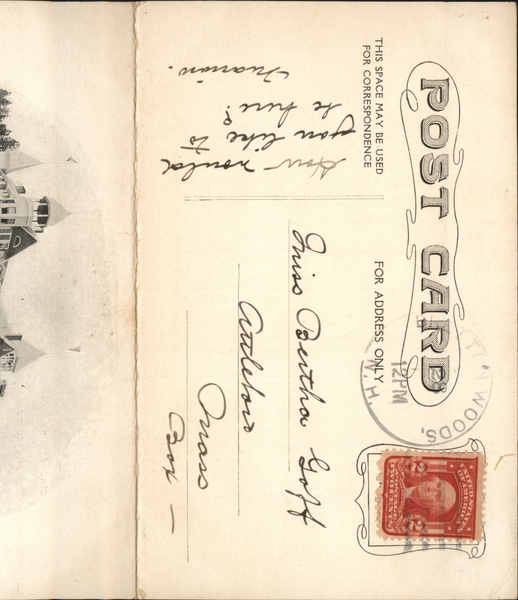 POST CARD
THIS SPACE MAY BE USED
FOR CORRESPONDENCE
FOR ADDRESS ONLY
How would
you like to
be here?
Marion.
Miss Bertha Goff
Attleboro
Mass
Box —
WOODS,
N.H.
12PM
UNITED STATES
OF AMERICA
2 2